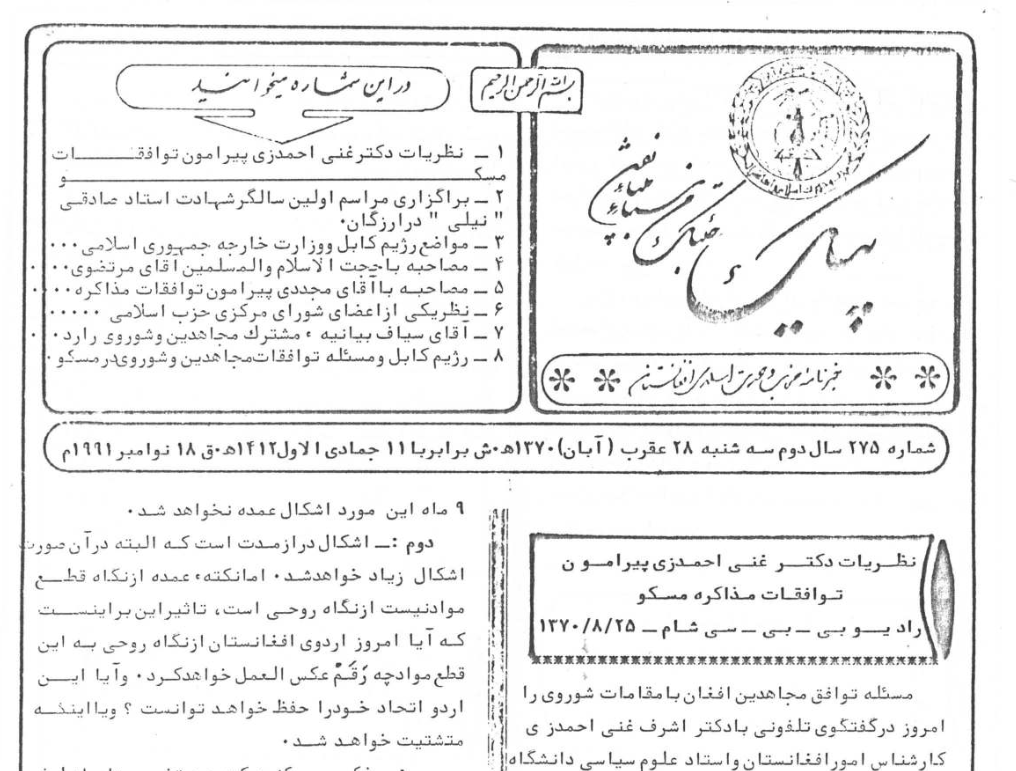 بسم الله الرحمن الرحیم
پیام
خبرنامه حزب وحدت اسلامی افغانستان
در این شماره میخوانید
۱ ـ نظریات دکترغنی احمدزی پیرامون توافقـــــــات
مسکـــــــــــــــــــــــو
۲ ـ برگزاری مراسم اولین سالگرشهادت استاد صادقی
" نیلی " درارزگان۰
۳ ـ مواضع رژیم کابل ووزارت خارجه جمهوری اسلامی۰۰۰
۴ ـ مصاحبه باحجت الاسلام والمسلمین آقای مرتضوی۰۰۰۰
۵ ـ مصاحبه باآقای مجددی پیرامون توافقات مذاکره۰۰۰۰
۶ ـ نظریکی ازاعضای شورای مرکزی حزب اسلامی ۰۰۰۰۰
۷ ـ آقای سیاف بیانیه ء مشترك مجاهدین وشوروی رارد۰۰
۸ ـ رژیم کابل ومسئله توافقات مجاهدین وشوروی درمسکو
شماره ۲۷۵ سال دوم سه شنبه ۲۸ عقرب (آبان)۱۳۷۰ه۰ش برابربا ۱۱ جمادی الاول۱۴۱۲ه۰ق ۱۸ نوامبر ۱۹۹۱م
نظریات دکتر غنی احمدزی پیرامون
توافقات مذاکره مسکو
رادیو بی ـ بی ـ سی شام ـ ۱۳۷۰/۸/۲۵
مسئله توافق مجاهدین افغان بامقامات شوروی را
امروز درگفتگوی تلفونی بادکتر اشرف غنی احمدزی
کارشناس امورافغانستان واستاد علوم سیاسی دانشگاه
۹ ماه این مورد اشکال عمده نخواهد شد۰
دوم :ـ اشکال درازمدت است که البته درآن صورت
اشکال زیاد خواهدشد۰ امانکته ء عمده ازنگاه قطع
موادنیست ازنگاه روحی است، تاثیراین براینست
که آیا امروز اردوی افغانستان ازنگاه روحی به این
قطع موادچه رَقَمْ عکس العمل خواهدکرد۰ وآیا این
اردو اتحاد خودرا حفظ خواهد توانست ؟ ویااینکه
متشتیت خواهد شد۰